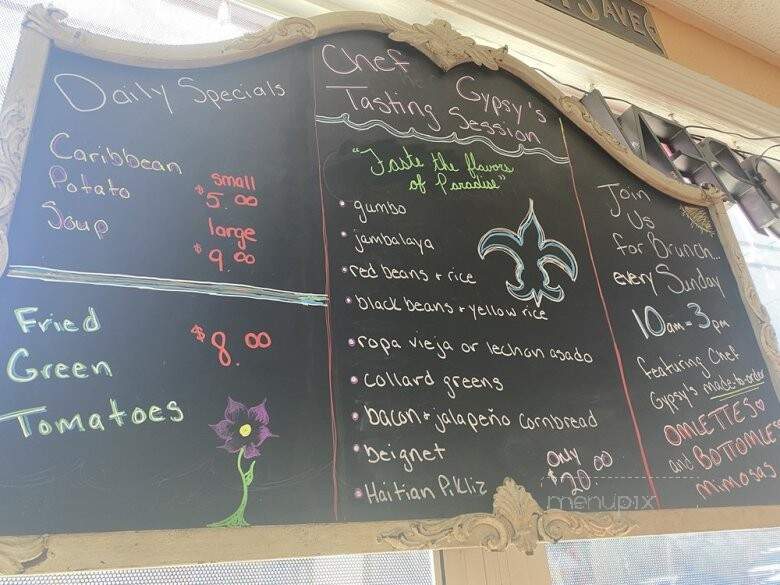 Daily Specials
Caribbean
Potato
Soup
small
$5.00
large
$9.00
Fried
Green
Tomatoes
$8.00
Chef Gypsy's
Tasting Session
"Taste the flavors
of Paradise"
• gumbo
• jambalaya
• red beans + rice
• black beans + yellow rice
• ropa vieja or lechon asado
• collard greens
• bacon + jalapeño cornbread
• beignet
• Haitian Pikliz
only
$20.00
Join
Us
for Brunch...
every Sunday
10am - 3pm
featuring Chef
Gypsy's made-to-order
OMLETTES
and BOTTOMLESS
mimosas
menupix